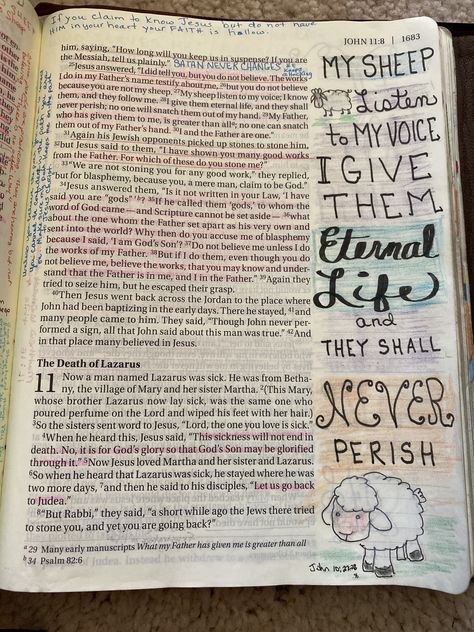 If you claim to know Jesus but do not have
HIM in your heart your FAITH is hollow.
JOHN 11:8 | 1683
him, saying, "How long will you keep us in suspense? If you are
the Messiah, tell us plainly." SATAN NEVER CHANGES
25Jesus answered, "I did tell you, but you do not believe. The works
I do in my Father's name testify about me, 26but you do not believe
because you are not my sheep. 27My sheep listen to my voice; I know
them, and they follow me. 28I give them eternal life, and they shall
never perish; no one will snatch them out of my hand. 29My Father,
who has given them to me, is greater than all a; no one can snatch
them out of my Father's hand. 30I and the Father are one."
31Again his Jewish opponents picked up stones to stone him,
32but Jesus said to them, "I have shown you many good works
from the Father. For which of these do you stone me?"
33"We are not stoning you for any good work," they replied,
"but for blasphemy, because you, a mere man, claim to be God."
34Jesus answered them, "Is it not written in your Law, 'I have
said you are "gods" ' b? 35If he called them 'gods,' to whom the
word of God came — and Scripture cannot be set aside — 36what
about the one whom the Father set apart as his very own and
sent into the world? Why then do you accuse me of blasphemy
because I said, 'I am God's Son'? 37Do not believe me unless I do
the works of my Father. 38But if I do them, even though you do
not believe me, believe the works, that you may know and under-
stand that the Father is in me, and I in the Father." 39Again they
tried to seize him, but he escaped their grasp.
40Then Jesus went back across the Jordan to the place where
John had been baptizing in the early days. There he stayed, 41and
many people came to him. They said, "Though John never per-
formed a sign, all that John said about this man was true." 42And
in that place many believed in Jesus.
The Death of Lazarus
11 Now a man named Lazarus was sick. He was from Betha-
ny, the village of Mary and her sister Martha. 2(This Mary,
whose brother Lazarus now lay sick, was the same one who
poured perfume on the Lord and wiped his feet with her hair.)
3So the sisters sent word to Jesus, "Lord, the one you love is sick."
4When he heard this, Jesus said, "This sickness will not end in
death. No, it is for God's glory so that God's Son may be glorified
through it." 5Now Jesus loved Martha and her sister and Lazarus.
6So when he heard that Lazarus was sick, he stayed where he was
two more days, 7and then he said to his disciples, "Let us go back
to Judea."
8"But Rabbi," they said, "a short while ago the Jews there tried
to stone you, and yet you are going back?"
a 29 Many early manuscripts What my Father has given me is greater than all
b 34 Psalm 82:6
MY SHEEP
Listen
to MY VOICE
I GIVE
THEM
Eternal
Life
and
THEY SHALL
NEVER
PERISH
John 10:27-28